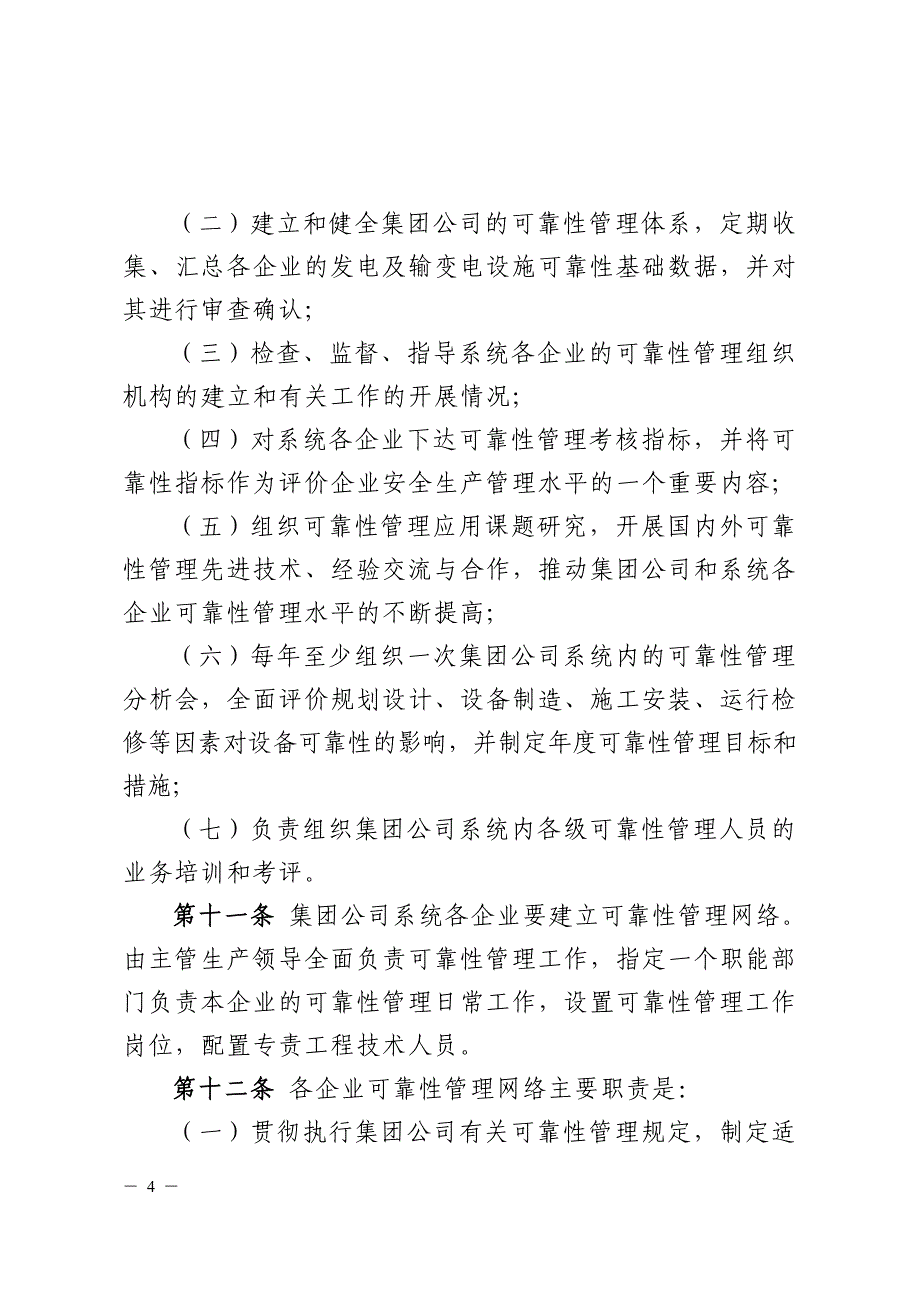 （二）建立和健全集团公司的可靠性管理体系，定期收
集、汇总各企业的发电及输变电设施可靠性基础数据，并对
其进行审查确认；
（三）检查、监督、指导系统各企业的可靠性管理组织
机构的建立和有关工作的开展情况；
（四）对系统各企业下达可靠性管理考核指标，并将可
靠性指标作为评价企业安全生产管理水平的一个重要内容；
（五）组织可靠性管理应用课题研究，开展国内外可靠
性管理先进技术、经验交流与合作，推动集团公司和系统各
企业可靠性管理水平的不断提高；
（六）每年至少组织一次集团公司系统内的可靠性管理
分析会，全面评价规划设计、设备制造、施工安装、运行检
修等因素对设备可靠性的影响，并制定年度可靠性管理目标和
措施；
（七）负责组织集团公司系统内各级可靠性管理人员的
业务培训和考评。
第十一条 集团公司系统各企业要建立可靠性管理网络。
由主管生产领导全面负责可靠性管理工作，指定一个职能部
门负责本企业的可靠性管理日常工作，设置可靠性管理工作
岗位，配置专责工程技术人员。
第十二条 各企业可靠性管理网络主要职责是：
（一）贯彻执行集团公司有关可靠性管理规定，制定适
－ 4 －